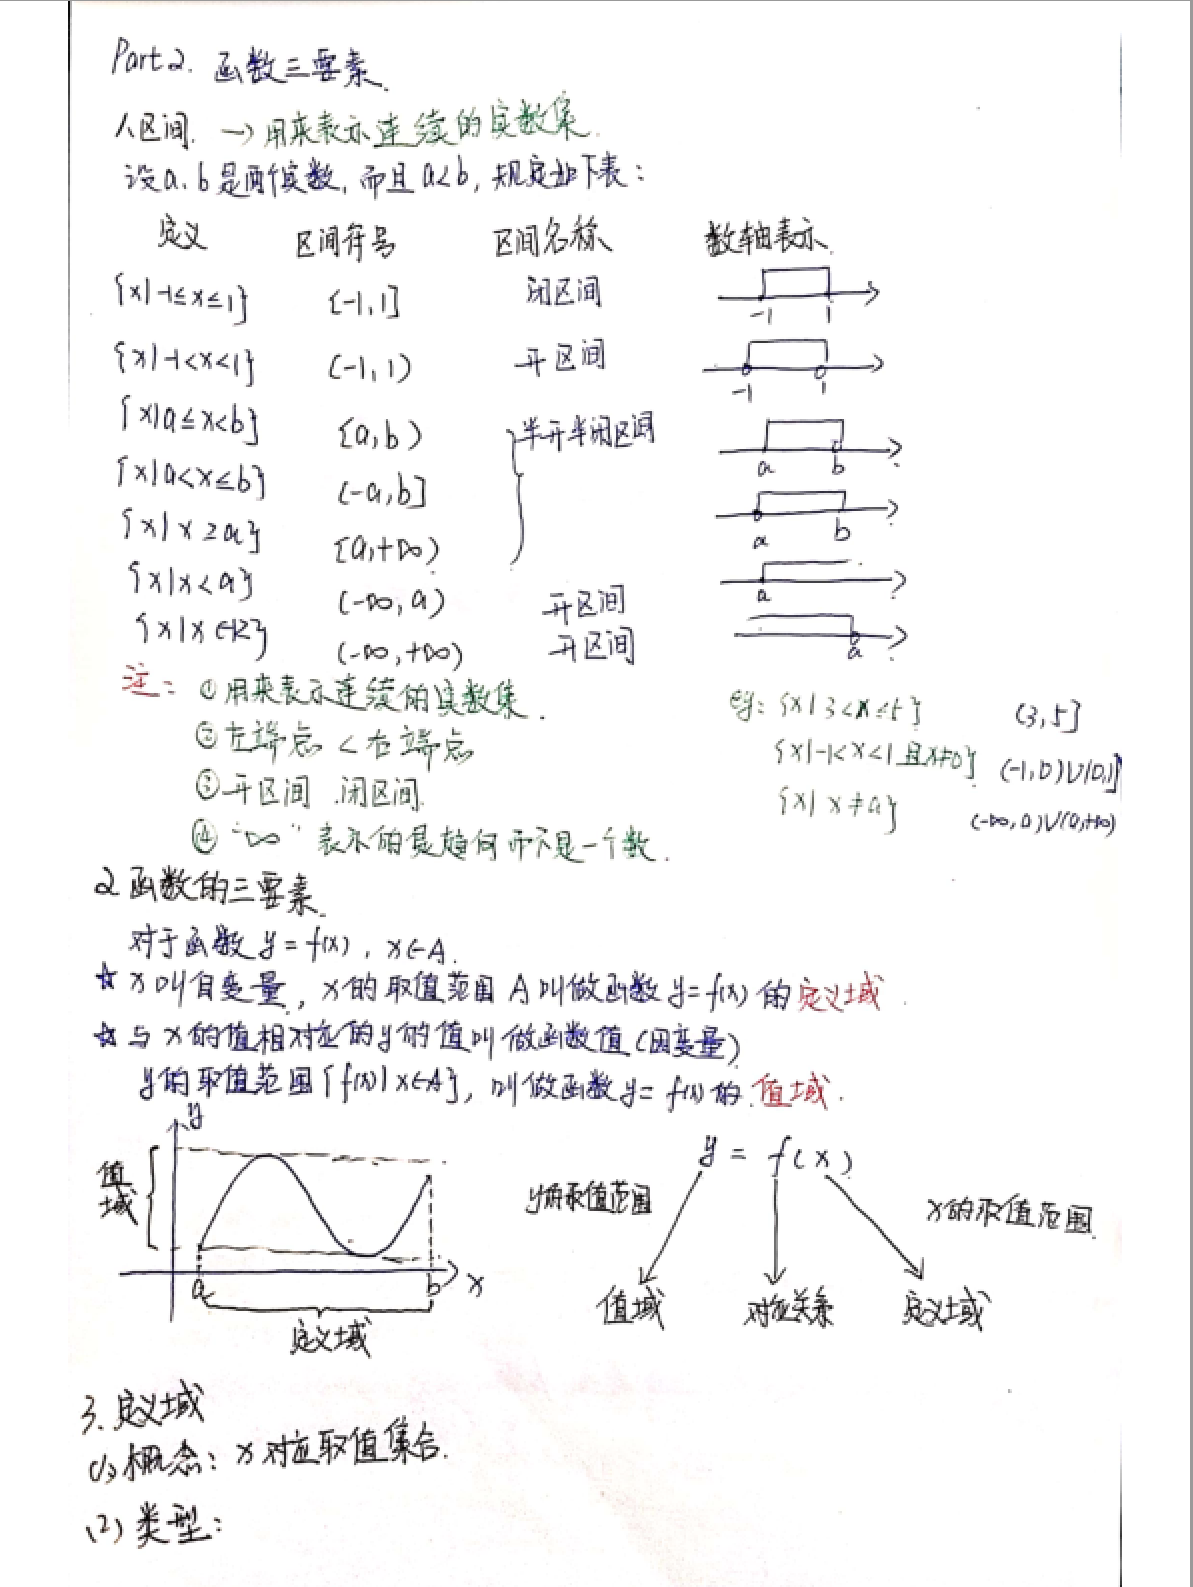 Part2. 函数三要素.
1.区间. → 用来表示连续的实数集.
设a、b是两个实数,而且a<b,规定如下表:
定义 区间符号 区间名称 数轴表示.
{x|-1≤x≤1} [-1,1] 闭区间 -1 1
{x|-1<x<1} (-1,1) 开区间 -1 1
{x|a≤x<b} [a,b) 半开半闭区间 a b
{x|a<x≤b} (-a,b] a b
{x|x≥a} [a,+∞) a
{x|x<a} (-∞,a) 开区间 a
{x|x∈R} (-∞,+∞) 开区间
注: ①用来表示连续的实数集.
②左端点<右端点
③开区间.闭区间.
④"∞"表示的是趋向而不是一个数.
eg: {x|3<x≤5} (3,5]
{x|-1<x<1且x≠0} (-1,0)∪(0,1)
{x|x≠a} (-∞,a)∪(a,+∞)
2 函数的三要素.
对于函数y=f(x),x∈A.
☆ x叫自变量,x的取值范围A叫做函数y=f(x)的定义域.
☆ 与x的值相对应的y的值叫做函数值(因变量)
y的取值范围{f(x)|x∈A},叫做函数y=f(x)的.值域.
y
值域
a b x
定义域
y = f(x)
y的取值范围 x的取值范围.
值域 对应关系 定义域
3.定义域
(1)概念: x对应取值集合.
(2)类型: